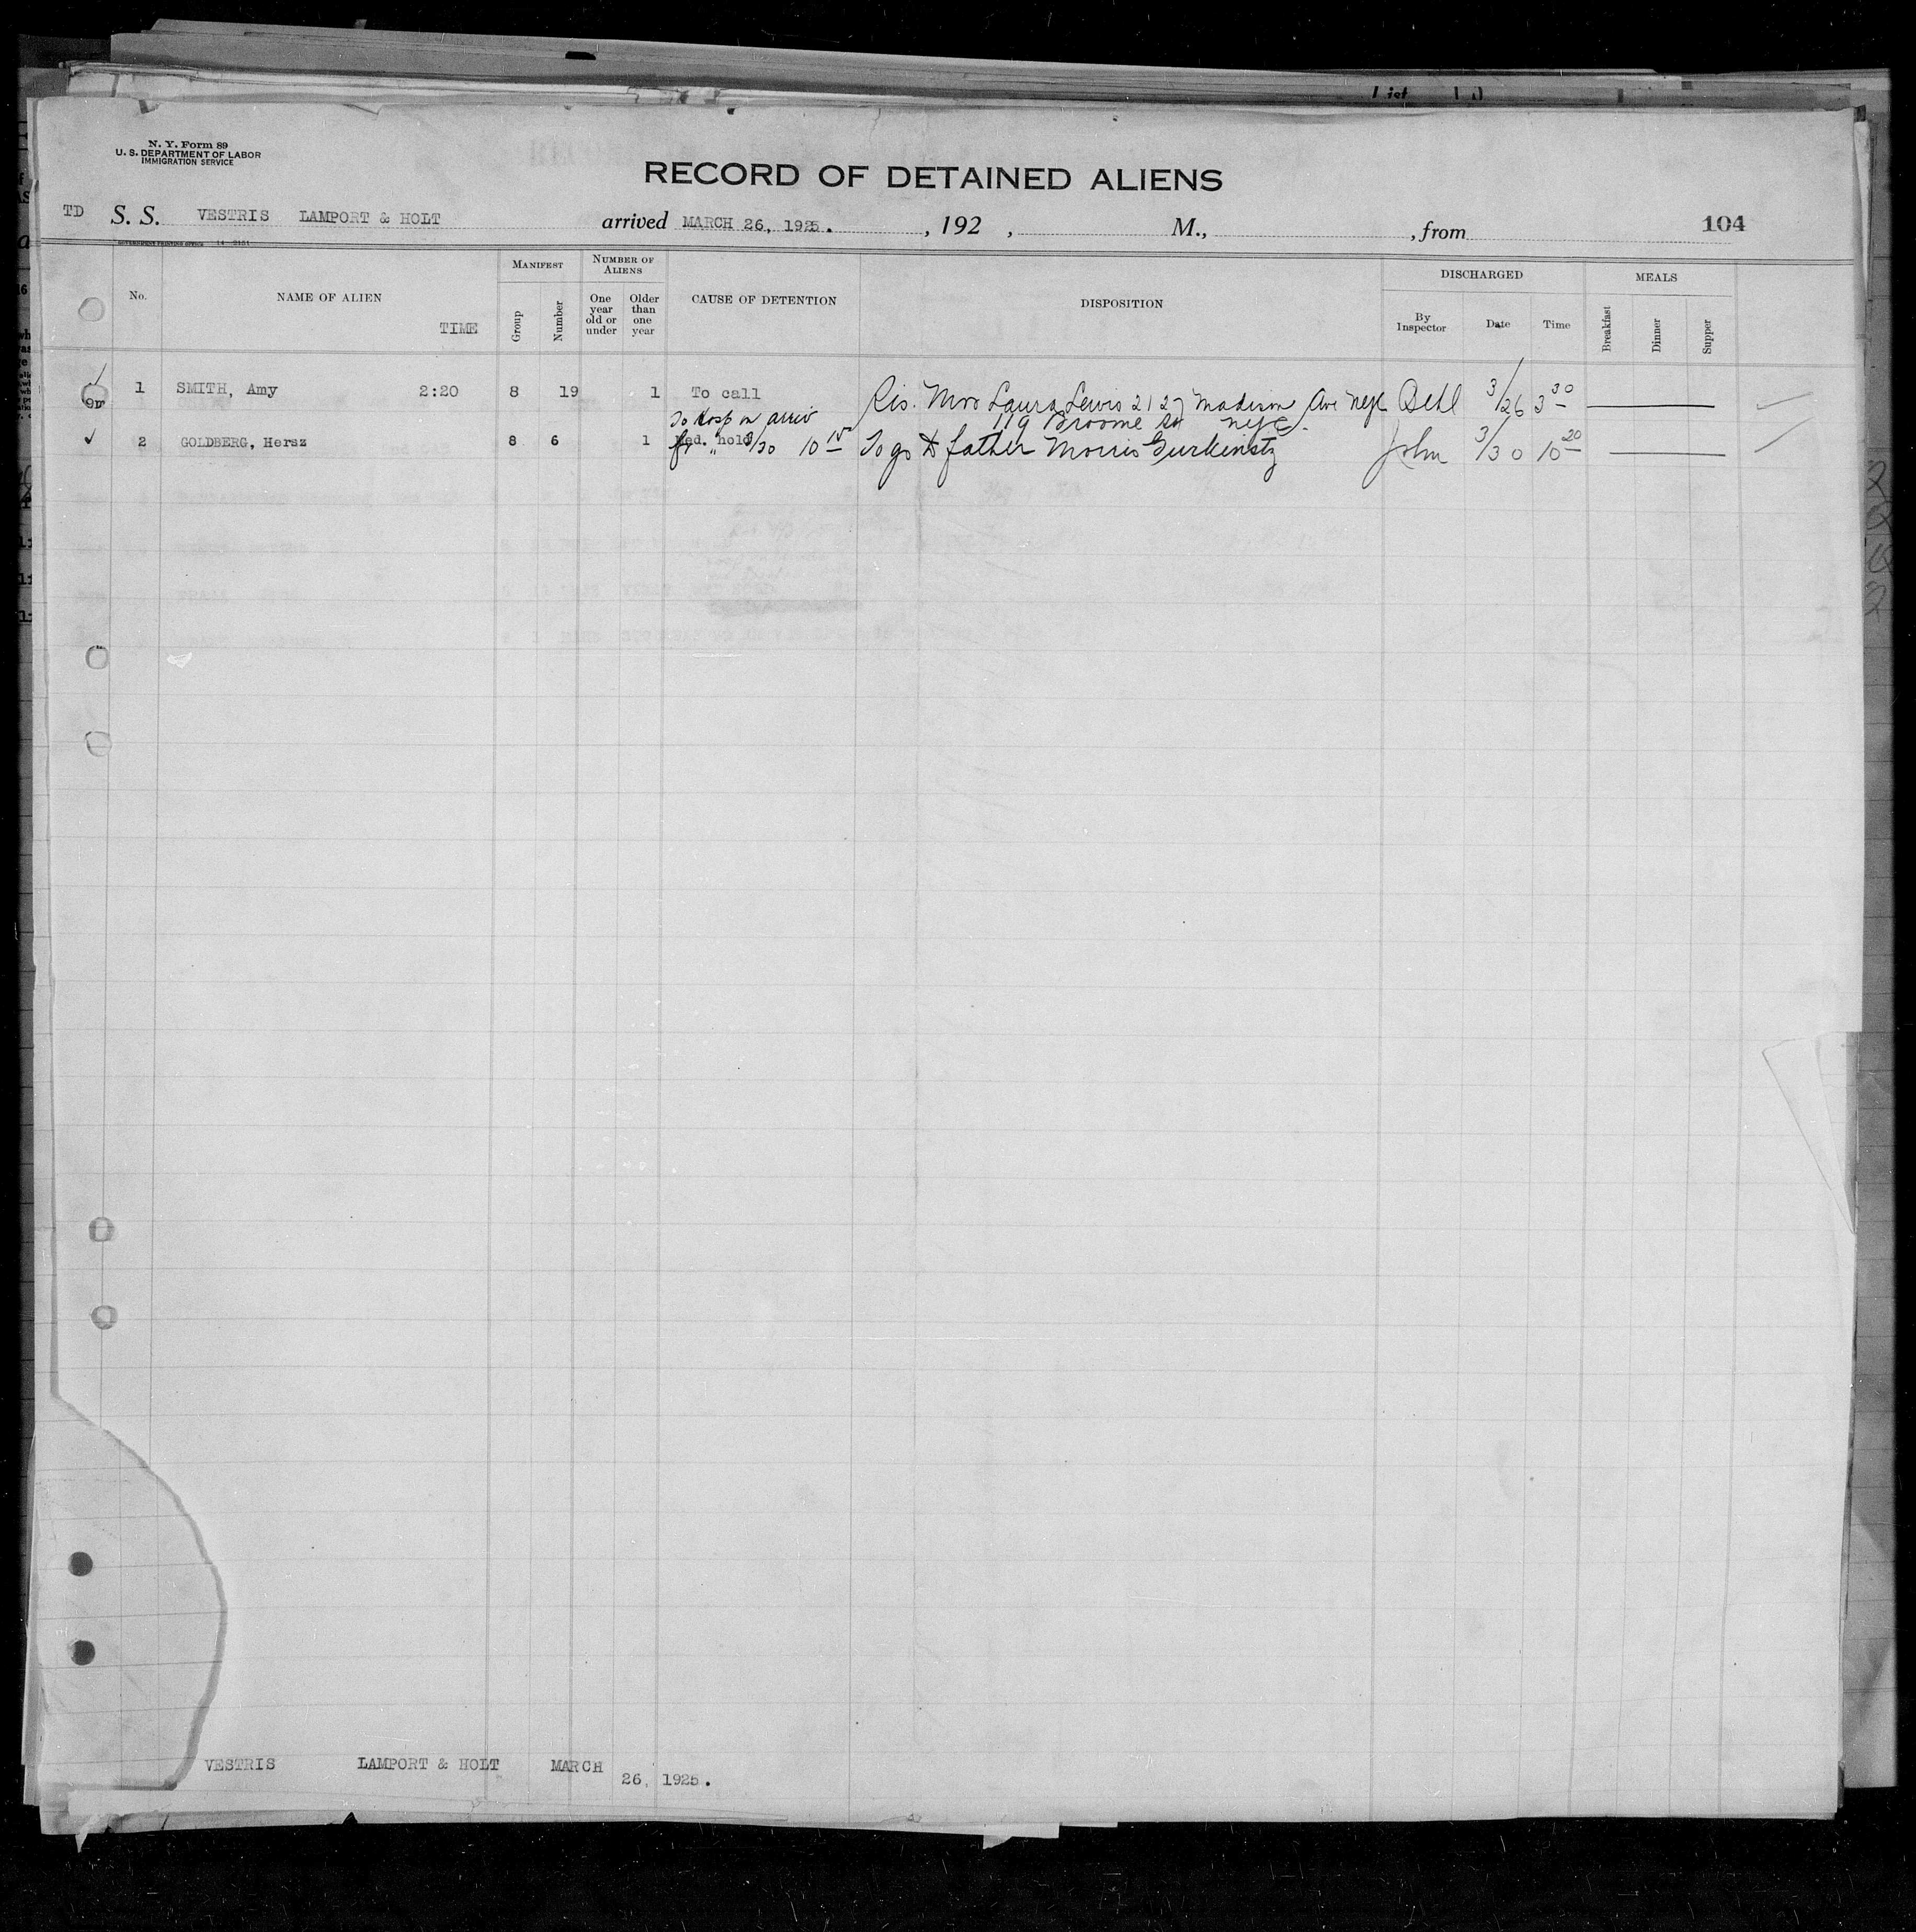 List
N. Y. Form 89
U. S. DEPARTMENT OF LABOR
IMMIGRATION SERVICE
RECORD OF DETAINED ALIENS
TD S. S. VESTRIS LAMPORT & HOLT arrived MARCH 26, 1925. , 192 , M., , from 104
GOVERNMENT PRINTING OFFICE
No. NAME OF ALIEN TIME MANIFEST Group Number NUMBER OF ALIENS One year old or under Older than one year CAUSE OF DETENTION DISPOSITION DISCHARGED By Inspector Date Time MEALS Breakfast Dinner Supper
1 SMITH, Amy 2:20 8 19 1 To call Sis. Mrs Laura Lewis 2127 Madison Ave NYC 3/26 3 30
To Hosp on arriv 119 Broome St NYC.
2 GOLDBERG, Hersz 8 6 1 Med. hold
fr " 3/30 10 15 To go to father Morris John 3/30 10 20
VESTRIS LAMPORT & HOLT MARCH 26, 1925.